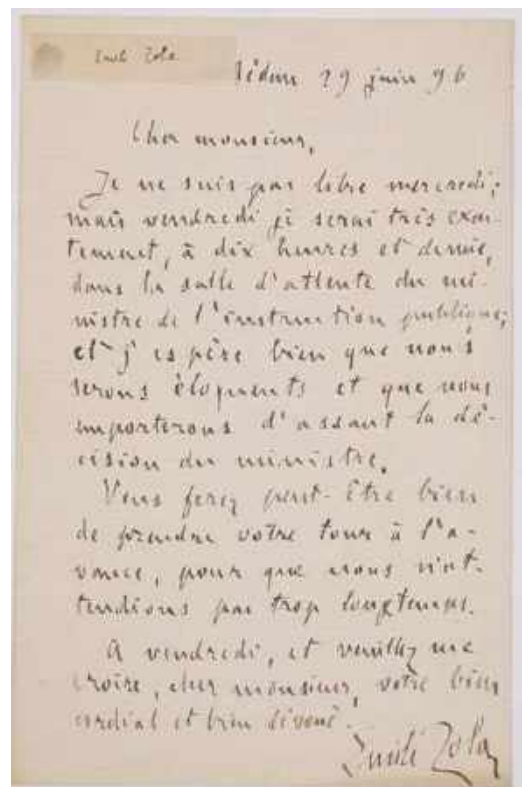 Emile Zola
Médan 29 juin 96
Cher monsieur,
Je ne suis pas libre mercredi;
mais vendredi je serai très exac-
tement, à dix heures et demie,
dans la salle d'attente du mi-
nistre de l'instruction publique;
et j'espère bien que nous
serons éloquents et que nous
emporterons d'assaut la dé-
cision du ministre.
Vous ferez peut-être bien
de prendre votre tour à l'a-
vance, pour que nous n'at-
tendions pas trop longtemps.
A vendredi, et veuillez me
croire, cher monsieur, votre bien
cordial et bien dévoué.
Emile Zola